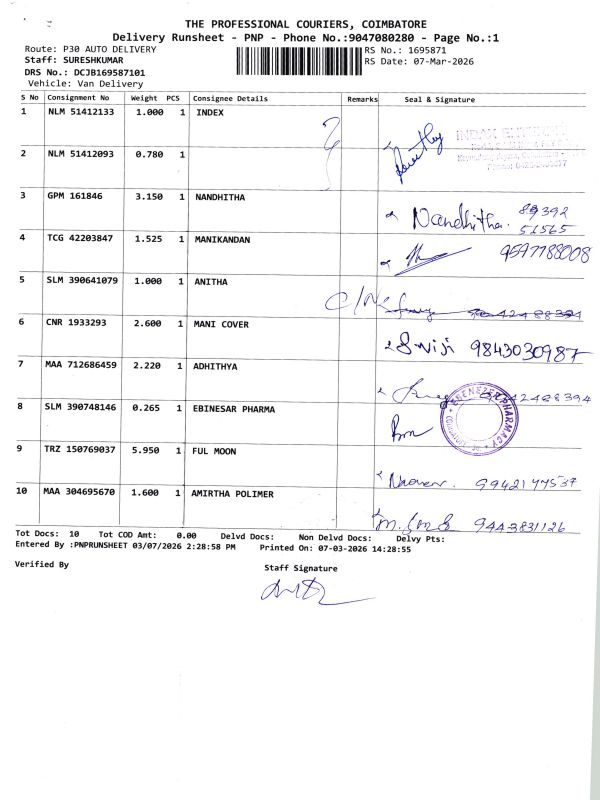 THE PROFESSIONAL COURIERS, COIMBATORE
Delivery Runsheet - PNP - Phone No.:9047080280 - Page No.:1
Route: P30 AUTO DELIVERY RS No.: 1695871
Staff: SURESHKUMAR RS Date: 07-Mar-2026
DRS No.: DCJB169587101
Vehicle: Van Delivery
S No Consignment No Weight PCS Consignee Details Remarks Seal & Signature
1 NLM 51412133 1.000 1 INDEX
2 NLM 51412093 0.780 1
3 GPM 161846 3.150 1 NANDHITHA
Nandhitha. 89392
51565
4 TCG 42203847 1.525 1 MANIKANDAN
9597788008
5 SLM 390641079 1.000 1 ANITHA
6 CNR 1933293 2.600 1 MANI COVER
9843030987
7 MAA 712686459 2.220 1 ADHITHYA
8 SLM 390748146 0.265 1 EBINESAR PHARMA
EBENEZER PHARMACY
9 TRZ 150769037 5.950 1 FUL MOON
10 MAA 304695670 1.600 1 AMIRTHA POLIMER
9443831126
Tot Docs: 10 Tot COD Amt: 0.00 Delvd Docs: Non Delvd Docs: Delvy Pts:
Entered By :PNPRUNSHEET 03/07/2026 2:28:58 PM Printed On: 07-03-2026 14:28:55
Verified By Staff Signature